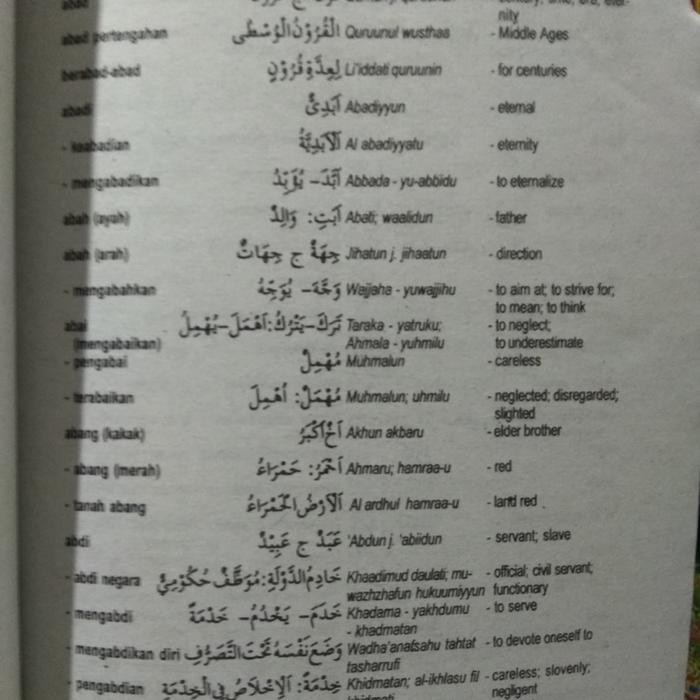 nity
abad pertengahan الْقُرُوْنُ الْوُسْطَى Quruunul wusthaa - Middle Ages
berabad-abad لِعِدَّةِ قُرُوْنٍ Li'iddati quruunin - for centuries
abadi أَبَدِيٌّ Abadiyyun - eternal
- keabadian اَلْأَبَدِيَّةُ Al abadiyyatu - eternity
- mengabadikan أَبَّدَ - يُؤَبِّدُ Abbada - yu-abbidu - to eternalize
abah (ayah) أَبَتِ: وَالِدٌ Abati; waalidun - father
abah (arah) جِهَةٌ ج جِهَاتٌ Jihatun j. jihaatun - direction
- mengabahkan وَجَّهَ - يُوَجِّهُ Wajjaha - yuwajjihu - to aim at; to strive for;
to mean; to think
abai تَرَكَ - يَتْرُكُ: أَهْمَلَ - يُهْمِلُ Taraka - yatruku; - to neglect;
(mengabaikan) Ahmala - yuhmilu to underestimate
- pengabai مُهْمِلٌ Muhmalun - careless
- terabaikan مُهْمَلٌ: أُهْمِلَ Muhmalun; uhmilu - neglected; disregarded;
slighted
abang (kakak) أَخٌ أَكْبَرُ Akhun akbaru - elder brother
- abang (merah) أَحْمَرُ: حَمْرَاءُ Ahmaru; hamraa-u - red
- tanah abang اَلْأَرْضُ الْحَمْرَاءُ Al ardhul hamraa-u - land red
abdi عَبْدٌ ج عَبِيْدٌ 'Abdun j. 'abiidun - servant; slave
- abdi negara خَادِمُ الدَّوْلَةِ: مُوَظَّفٌ حُكُوْمِيٌّ Khaadimud daulati; mu- - official; civil servant;
wazhzhafun hukuumiyyun functionary
- mengabdi خَدَمَ - يَخْدُمُ - خَدْمَةً Khadama - yakhdumu - to serve
- khadmatan
- mengabdikan diri وَضَعَ نَفْسَهُ تَحْتَ التَّصَرُّفِ Wadha'anafsahu tahtat - to devote oneself to
tasharrufi
- pengabdian خِدْمَةٌ: اَلْإِخْلَاصُ فِي الْخِدْمَةِ Khidmatan; al-ikhlasu fil - careless; slovenly;
negligent